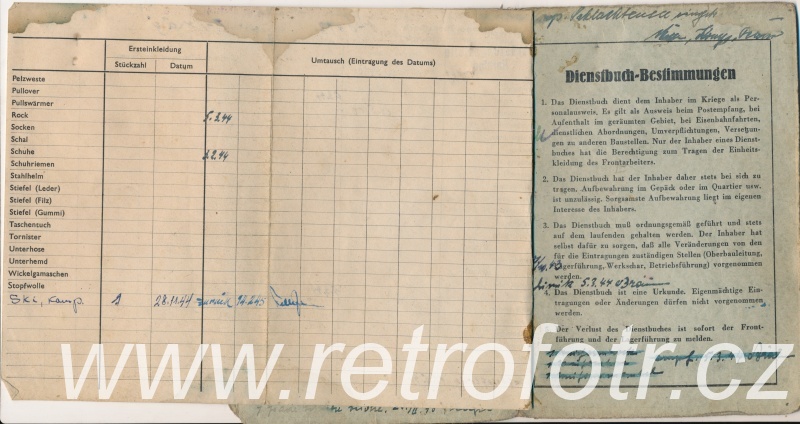 Ersteinkleidung
Stückzahl Datum
Umtausch (Eintragung des Datums)
Pelzweste
Pullover
Pullswärmer
Rock 5.2.44
Socken
Schal
Schuhe 2.2.44
Schuhriemen
Stahlhelm
Stiefel (Leder)
Stiefel (Filz)
Stiefel (Gummi)
Taschentuch
Tornister
Unterhose
Unterhemd
Wickelgamaschen
Stopfwolle
Ski, komp. 1 28.11.44 zurück
Schlachtensee
Dienstbuch-Bestimmungen
1. Das Dienstbuch dient dem Inhaber im Kriege als Per-
sonalausweis. Es gilt als Ausweis beim Postempfang, bei
Aufenthalt im geräumten Gebiet, bei Eisenbahnfahrten,
dienstlichen Abordnungen, Umverpflichtungen, Versetzun-
gen zu anderen Baustellen. Nur der Inhaber eines Dienst-
buches hat die Berechtigung zum Tragen der Einheits-
kleidung des Frontarbeiters.
2. Das Dienstbuch hat der Inhaber daher stets bei sich zu
tragen. Aufbewahrung im Gepäck oder im Quartier usw.
ist unzulässig. Sorgsamste Aufbewahrung liegt im eigenen
Interesse des Inhabers.
3. Das Dienstbuch muß ordnungsgemäß geführt und stets
auf dem laufenden gehalten werden. Der Inhaber hat
selbst dafür zu sorgen, daß alle Veränderungen von den
für die Eintragungen zuständigen Stellen (Oberbauleitung,
Lagerführung, Werkschar, Betriebsführung) vorgenommen
werden.
zurück 5.2.44
4. Das Dienstbuch ist eine Urkunde. Eigenmächtige Ein-
tragungen oder Änderungen dürfen nicht vorgenommen
werden.
Der Verlust des Dienstbuches ist sofort der Front-
führung und der Lagerführung zu melden.
www.retrofotr.cz